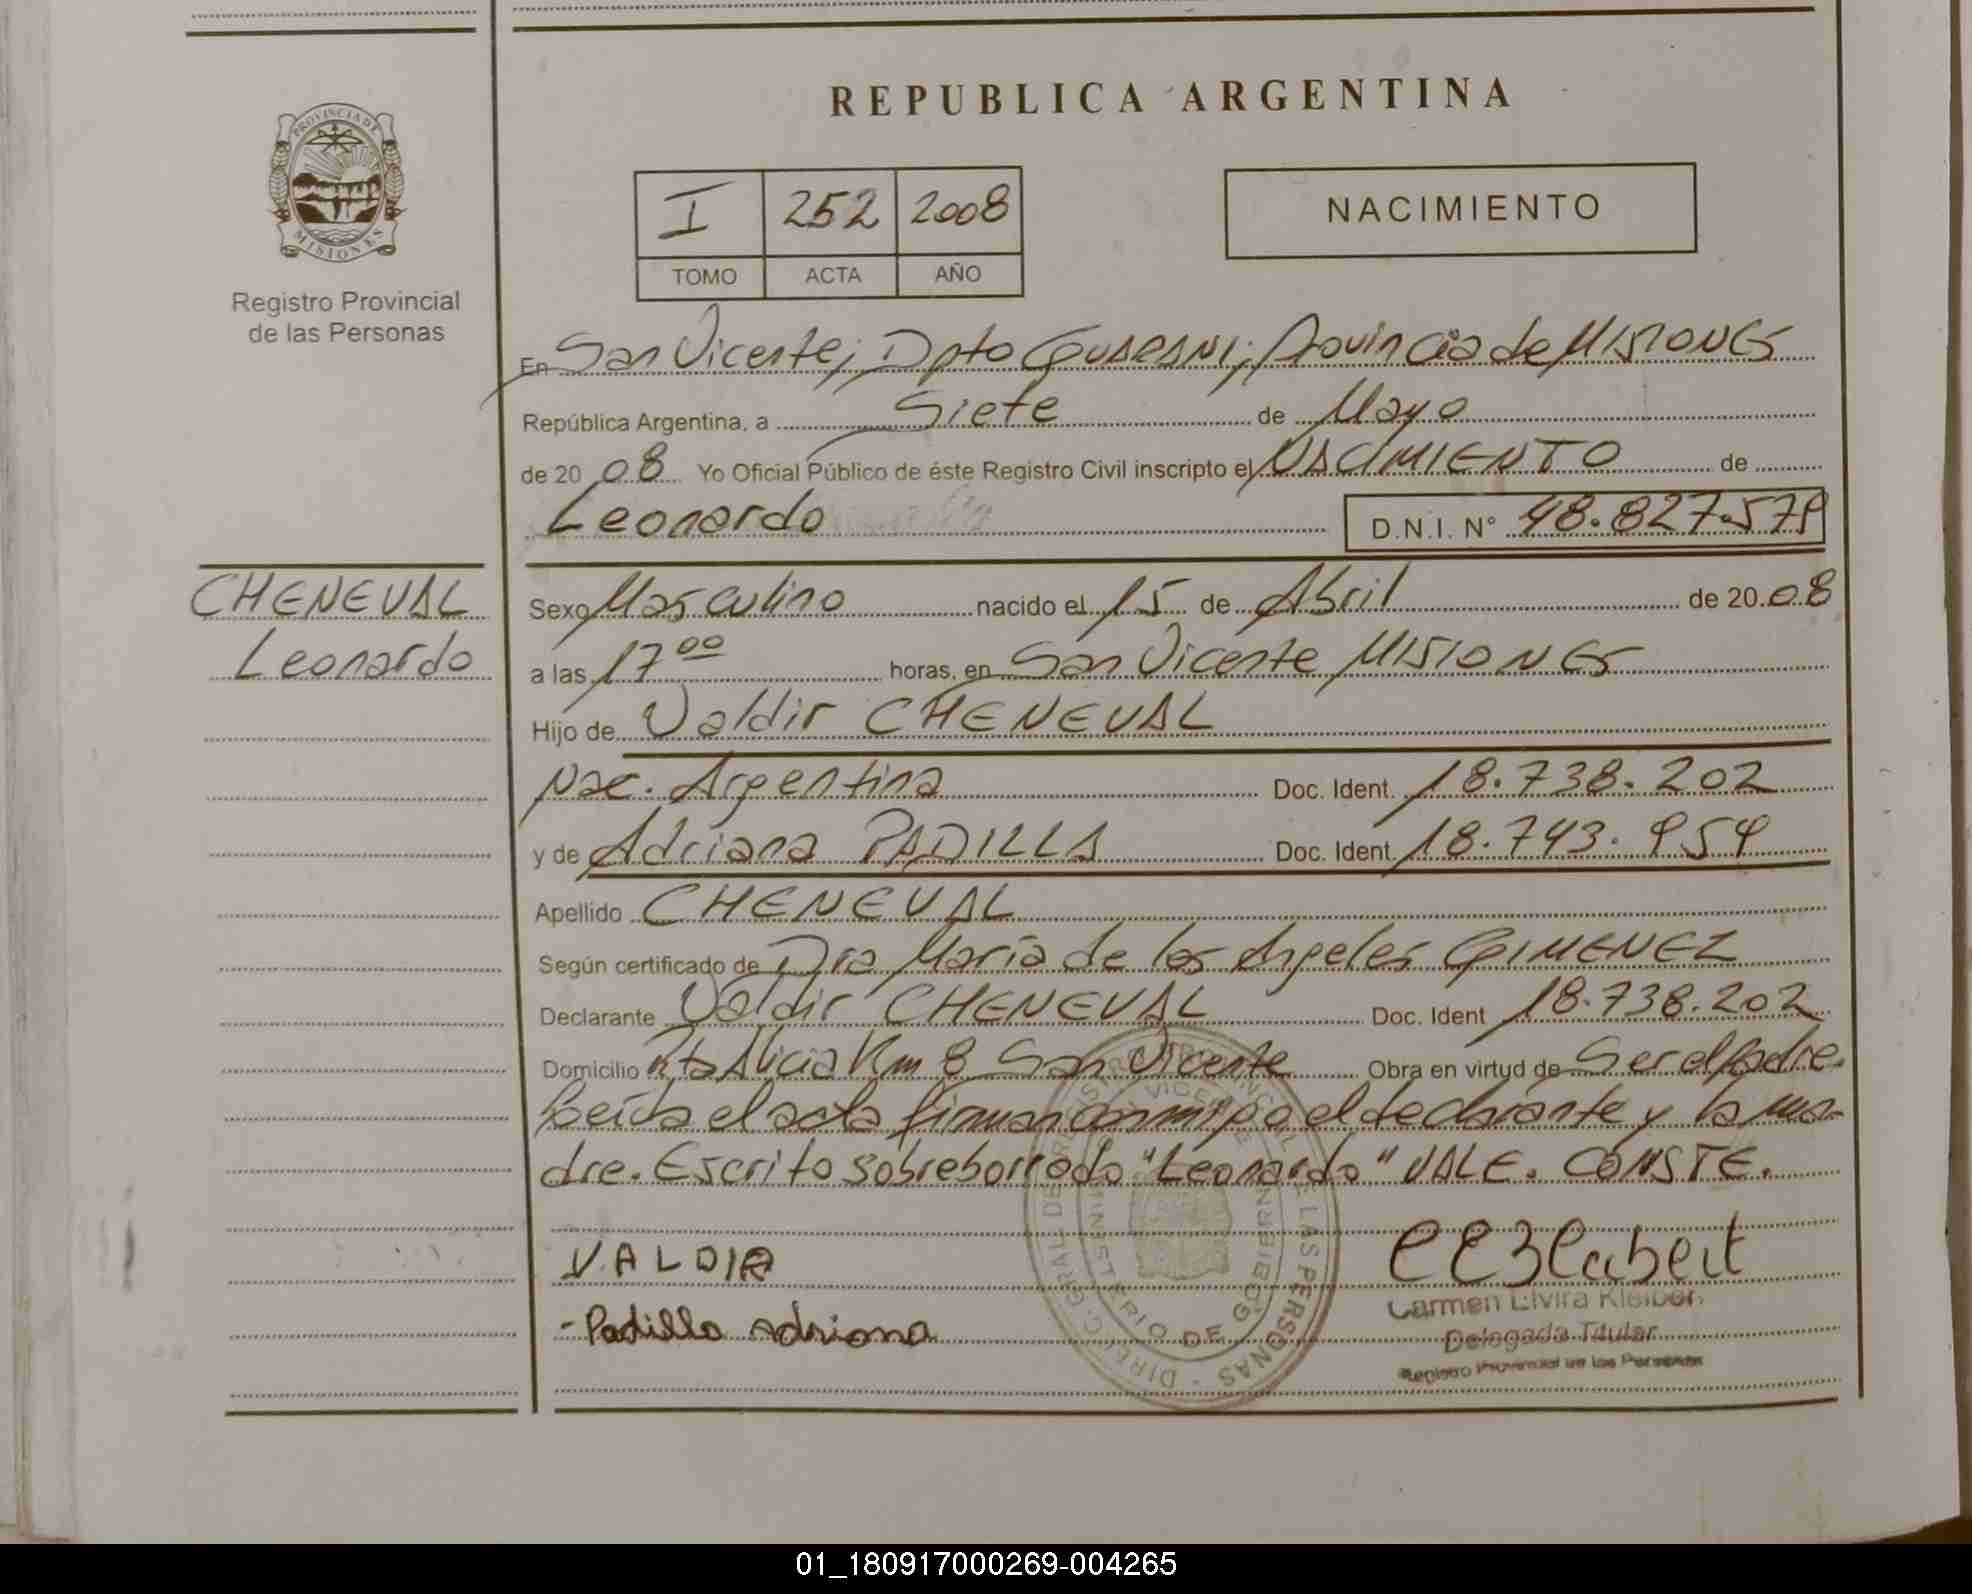 REPUBLICA ARGENTINA
PROVINCIA DE MISIONES
Registro Provincial
de las Personas
I 252 2008
TOMO ACTA AÑO
NACIMIENTO
En San Vicente, Dpto GUARANI, Provincia de MISIONES
República Argentina, a Siete de Mayo
de 2008 Yo Oficial Público de éste Registro Civil inscripto el NACIMIENTO de
Leonardo D.N.I. N° 48.827.579
CHENEVAL
Leonardo
Sexo Masculino nacido el 15 de Abril de 2008
a las 17 00 horas, en San Vicente MISIONES
Hijo de Valdir CHENEVAL
Nac. Argentina Doc. Ident. 18.738.202
y de Adriana PADILLA Doc. Ident. 18.743.954
Apellido CHENEVAL
Según certificado de Dra María de los Angeles GIMENEZ
Declarante Valdir CHENEVAL Doc. Ident 18.738.202
Domicilio Rta Alicia Km 8 San Vicente Obra en virtud de Ser el Padre.
Leída el acta firman conmigo el declarante y la ma-
dre. Escrito sobreborrado "Leonardo" VALE. CONSTE.
VALDIR
- Padilla Adriana
Carmen Elvira Kleiber
Delegada Titular
Registro Provincial de las Personas
DIREC. GRAL DE REGISTRO PROVINCIAL DE LAS PERSONAS
MINISTERIO DE GOBIERNO
01_180917000269-004265